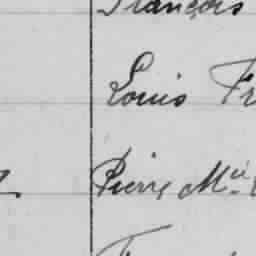 François
Louis Fr
Pierre Mie